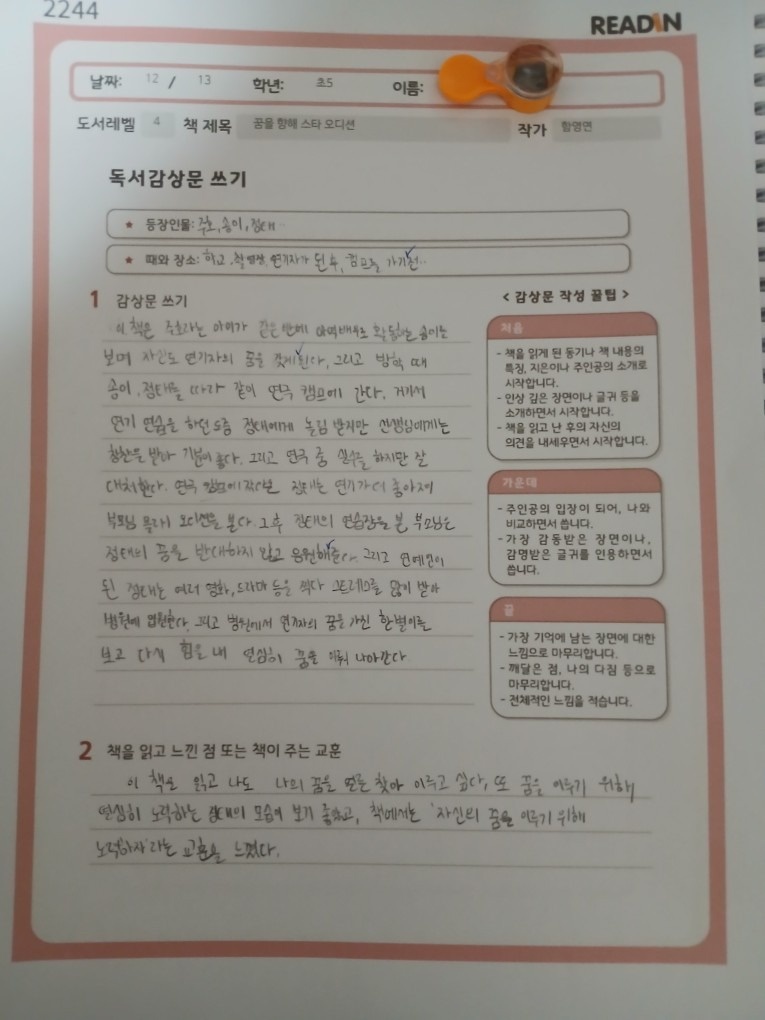 2244
READIN
날짜: 12 / 13 학년: 초5 이름:
도서레벨 4 책 제목 꿈을 향해 스타 오디션 작가 함영연
독서감상문 쓰기
★ 등장인물: 주호, 송이, 정대..
★ 때와 장소: 학교, 촬영장, 연기자가 된 후, 캠프를 가기전..
1 감상문 쓰기
이 책은 주호라는 아이가 같은 반에 아역배우로 활동하는 송이를
보며 자신도 연기자의 꿈을 갖게된다, 그리고 방학 때
송이, 정대를 따라 같이 연극 캠프에 간다. 거기서
연기 연습을 하던 도중 정대에게 놀림 받지만 선생님에게는
칭찬을 받아 기분이 좋다. 그리고 연극 중 실수를 하지만 잘
대처한다. 연극 캠프에 갔다온 정대는 연기가 더 좋아져
부모님 몰래 오디션을 본다. 그 후 정대의 연습장을 본 부모님은
정대의 꿈을 반대하지 않고 응원해준다. 그리고 연예인이
된 정대는 여러 영화, 드라마 등을 찍다 스트레스를 많이 받아
병원에 입원한다. 그리고 병원에서 연기자의 꿈을 가진 한별이를
보고 다시 힘을 내 열심히 꿈을 이뤄 나아간다
< 감상문 작성 꿀팁 >
처음
- 책을 읽게 된 동기나 책 내용의
특징, 지은이나 주인공의 소개로
시작합니다.
- 인상 깊은 장면이나 글귀 등을
소개하면서 시작합니다.
- 책을 읽고 난 후의 자신의
의견을 내세우면서 시작합니다.
가운데
- 주인공의 입장이 되어, 나와
비교하면서 씁니다.
- 가장 감동받은 장면이나,
감명받은 글귀를 인용하면서
씁니다.
끝
- 가장 기억에 남는 장면에 대한
느낌으로 마무리합니다.
- 깨달은 점, 나의 다짐 등으로
마무리합니다.
- 전체적인 느낌을 적습니다.
2 책을 읽고 느낀 점 또는 책이 주는 교훈
이 책을 읽고 나도 나의 꿈을 얼른 찾아 이루고 싶다, 또 꿈을 이루기 위해
열심히 노력하는 정대의 모습이 보기 좋았고, 책에서는 '자신의 꿈을 이루기 위해
노력하자'라는 교훈을 느꼈다.